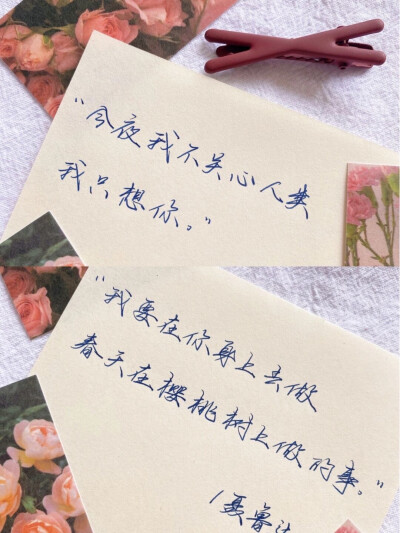 “今夜我不关心人类
我只想你。”
“我要在你身上去做
春天在樱桃树上做的事。”
/聂鲁达